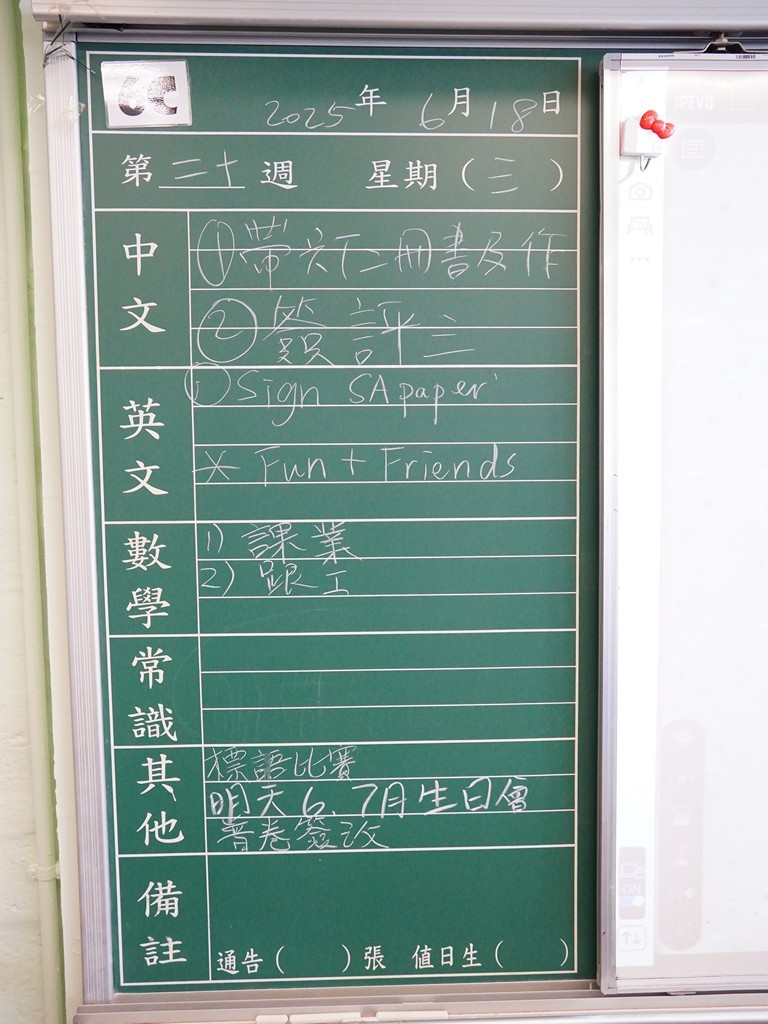 6C
2025年 6月 18日
第 三十 週 星期（三）
中文
① 帶六下二冊書及作
② 簽評三
英文
① Sign SA paper
* Fun + Friends
數學
1) 課業
2)
常識
其他
標語比賽
明天6、7月生日會
卷簽改
備註
通告（ ）張 值日生（ ）
IPEVO
ON